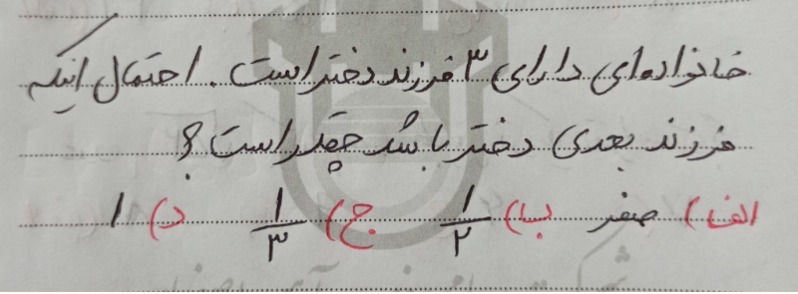 خانواده‌ای دارای ۳ فرزند دختر است. احتمال اینکه
فرزند بعدی دختر باشد چقدر است؟
الف) صفر ب) ۱/۲ ج) ۱/۳ د) ۱